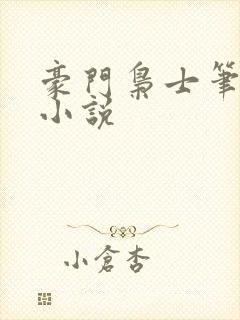 豪門梟士筆
小説
小倉杏